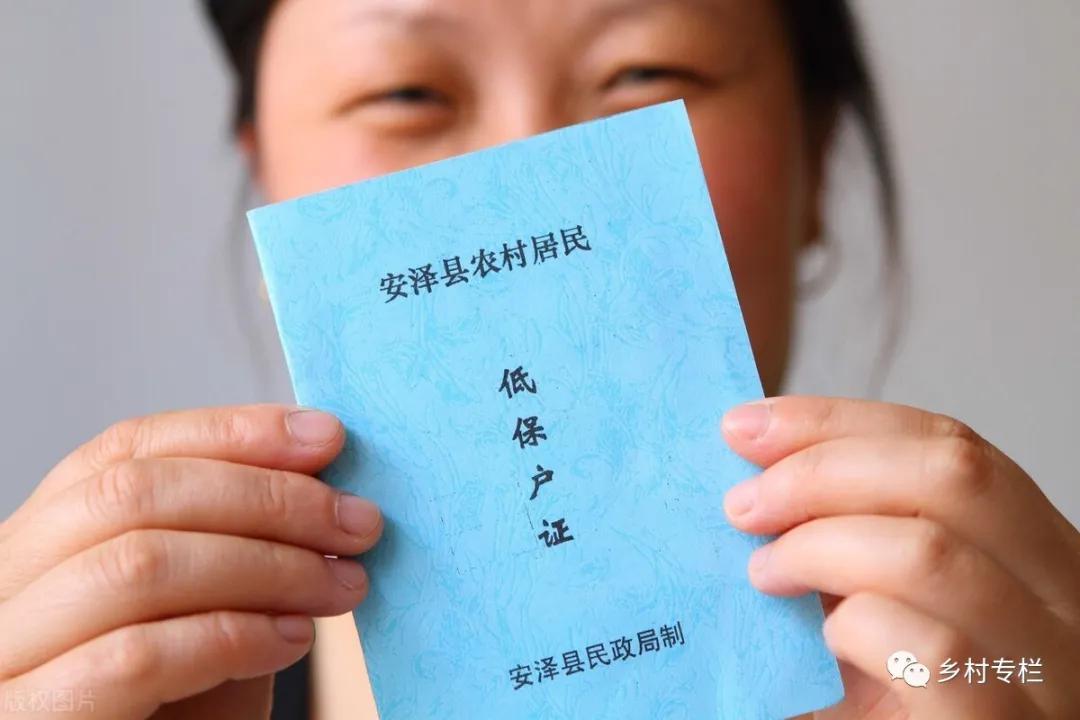 安泽县农村居民
低
保
户
证
安泽县民政局制
乡村专栏
版权图片